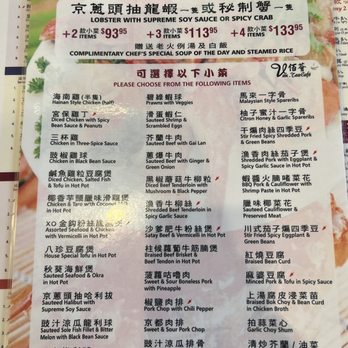 京蔥頭抽龍蝦一隻或秘制蟹一隻
LOBSTER WITH SUPREME SOY SAUCE OR SPICY CRAB
+2 款小菜 ITEMS $93.95 +3 款小菜 ITEMS $113.95 +4 款小菜 ITEMS $133.95
贈送老火例湯及白飯
COMPLIMENTARY CHEF'S SPECIAL SOUP OF THE DAY AND STEAMED RICE
可選擇以下小菜
PLEASE CHOOSE FROM THE FOLLOWING ITEMS
海南雞(半隻)
Hainan Style Chicken (half)
宮保雞丁
Diced Chicken with Spicy
Bean Sauce & Peanuts
三杯雞
Chicken in Three-Spice Sauce
豉椒雞球
Chicken in Black Bean Sauce
鹹魚雞粒豆腐煲
Diced Chicken, Salted Fish
& Tofu in Hot Pot
椰香芋頭臘味滑雞煲
in Hot Pot
XO金鈎粉絲
Assorted Seafood & Chicken
with Vermicelli in Hot Pot
八珍豆腐煲
House Special Tofu in Hot Pot
秋葵海鮮煲
Seafood & Okra
in Hot Pot
京蔥頭抽啫喱
Sauteed Halibut with
Supreme Soy Sauce
豉汁涼瓜龍利球
Sauteed Sole Fish Fillet & Bitter
Melon with Black Bean Sauce
豉汁涼瓜
碧綠蝦球
Prawns with Veggies
滑蛋蝦仁
Sauteed Shrimp &
Scrambled Eggs
芥蘭牛肉
Sauteed Beef with Gai Lan
薑爆牛肉
Sauteed Beef with Ginger &
Green Onion
黑椒蘑菇牛柳粒
Diced Beef Tenderloin with
Mushroom & Black Pepper
漁香牛柳絲
Shredded Beef Tenderloin in
Spicy Garlic Sauce
沙爹肥牛粉絲煲
Sauteed Beef with Satay Sauce
& Vermicelli in Hot Pot
柱候蘿蔔牛筋腩煲
Braised Beef Brisket
& Turnip in Hot Pot
菠蘿咕嚕肉
Sweet & Sour Boneless
& Pineapple
椒鹽肉排
Pork Chop with Chili Pepper
京都肉排
Sweet & Sour Pork Chop
豉汁涼瓜排骨
馬來一字骨
Malaysian Style Spareribs
柚子蜜汁一字骨
Honey Garlic Spareribs
干爆肉絲四季豆
Stir Fried Spicy Shredded Pork
& Green Beans
漁香肉絲茄子煲
Shredded Pork with Eggplant &
Spicy Garlic in Hot Pot
蝦醬火腩啫菜花
BBQ Pork & Cauliflower with
Shrimp Paste in Hot Pot
臘味椰菜花
Sauteed Cauliflower &
Preserved Meat
川式茄子爆四季豆
Stir Fried Spicy Eggplant &
Green Beans
紅燒豆腐
Braised Tofu
麻婆豆腐
Minced Pork & Tofu in Spicy Sauce
上湯腐皮浸菜苗
in Chicken Broth
拍蒜菜心
Garlic Choy Shum
清炒芥蘭 / 油菜